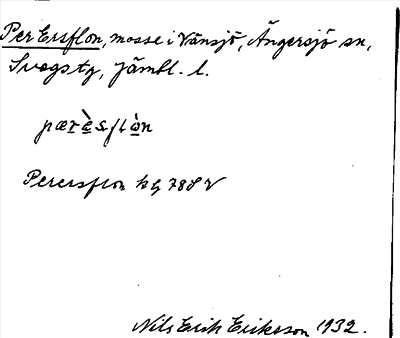 Per Ersflon, mosse i Vänsjö, Ängersjö sn,
Svegs tg, Jämtl. l.
pærèsflòn
Perersflon kg 78SV
Nils Erik Eriksson 1932.